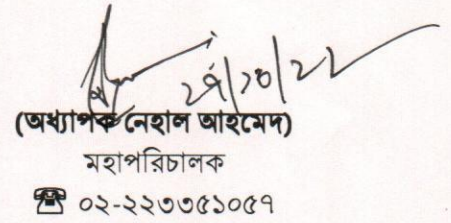 ২৭/১০/২২
(অধ্যাপক নেহাল আহমেদ)
মহাপরিচালক
☎ ০২-২২৩৩৫১০৫৭